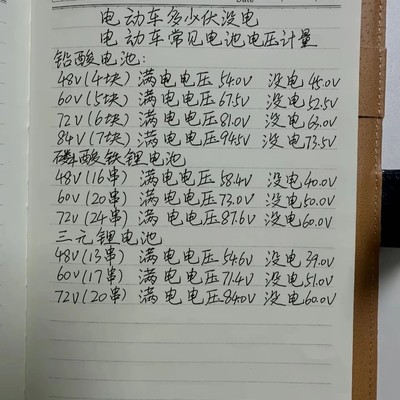 Date
电动车多少伏没电
电动车常见电池电压计量
铅酸电池:
48V(4块) 满电电压54.0V 没电45.0V
60V(5块) 满电电压67.5V 没电52.5V
72V(6块) 满电电压81.0V 没电63.0V
84V(7块) 满电电压94.5V 没电73.5V
磷酸铁锂电池
48V(16串) 满电电压58.4V 没电40.0V
60V(20串) 满电电压73.0V 没电50.0V
72V(24串) 满电电压87.6V 没电60.0V
三元锂电池
48V(13串) 满电电压54.6V 没电39.0V
60V(17串) 满电电压71.4V 没电51.0V
72V(20串) 满电电压84.0V 没电60.0V